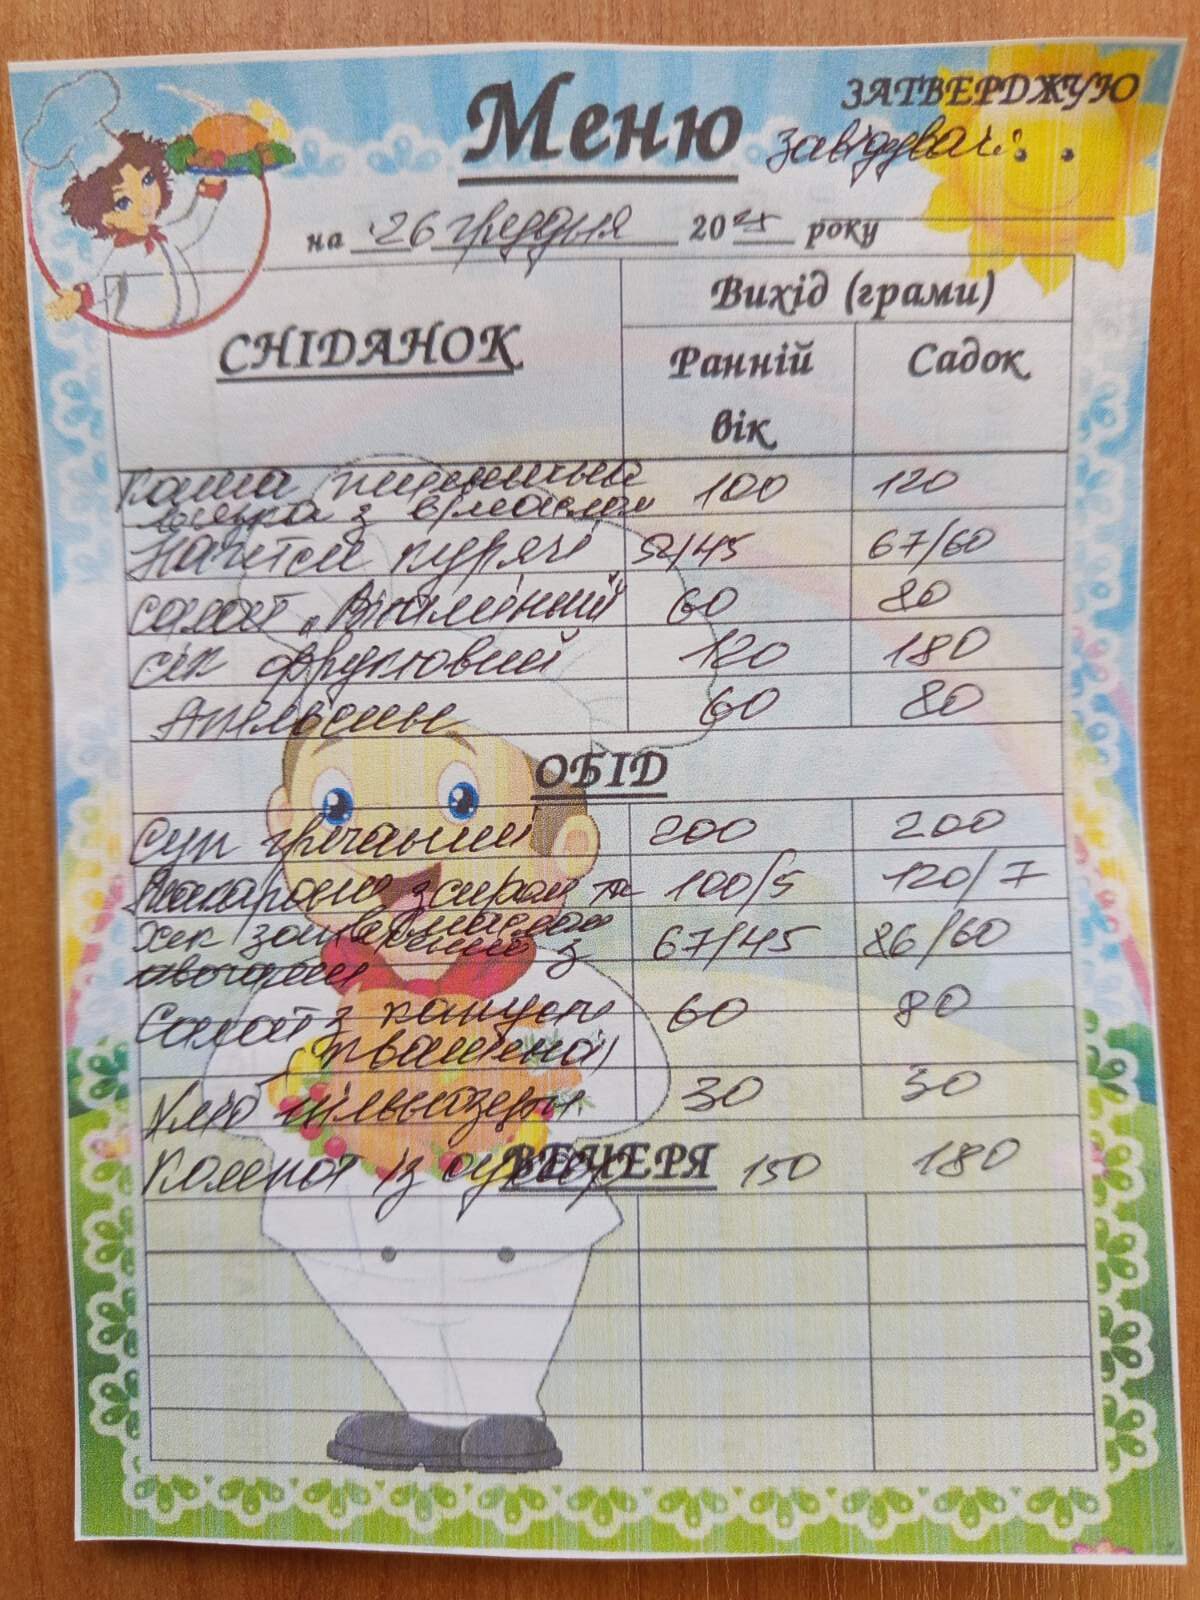 Меню
ЗАТВЕРДЖУЮ
завідувач
на 26 грудня 20 року
СНІДАНОК
Вихід (грами)
Ранній вік
Садок
Каша пшенична 100 120
в'язка з в/маслом
Нагетси курячі 52/45 67/60
салат „Вітамінний 60 80
сік фруктовий 120 180
Апельсини 60 80
ОБІД
Суп гречаний 200 200
Макарони з сиром та 100/5 120/7
в/маслом
Хек запечений з 67/45 86/60
овочами
Салат з капусти 60 80
квашеної
Хліб 30 30
ВЕЧЕРЯ
Компот із 150 180